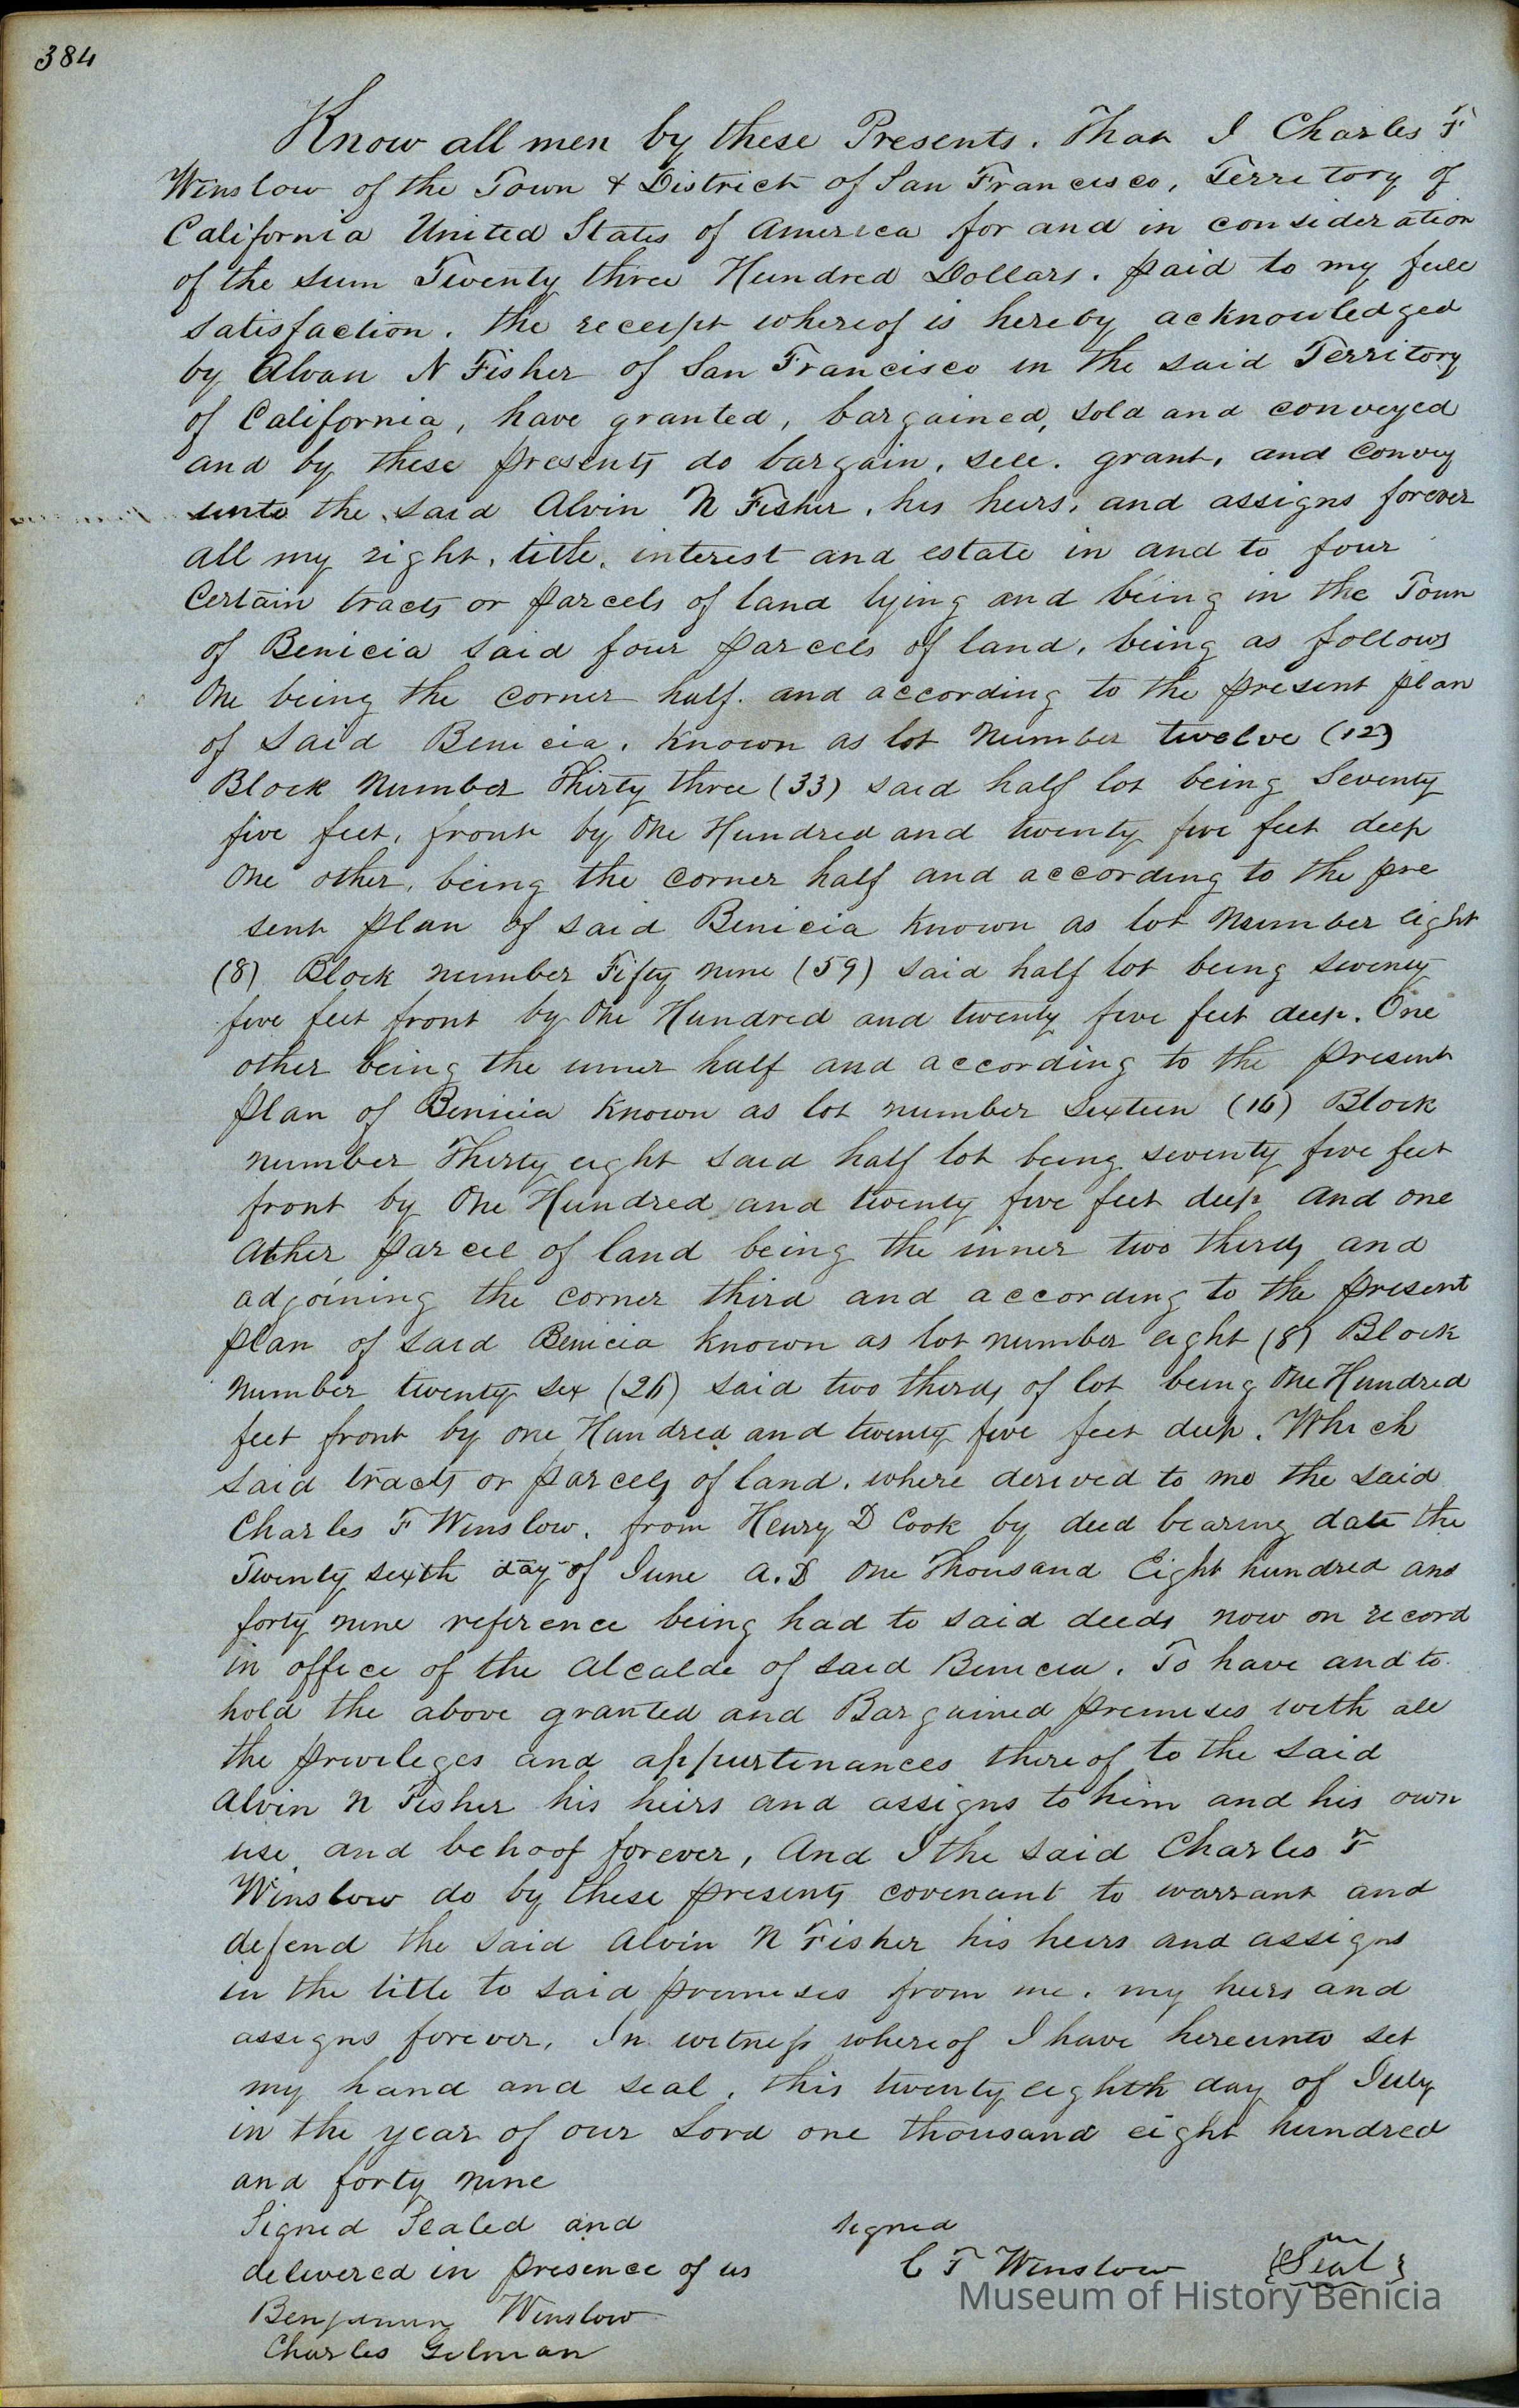 384
Know all men by these Presents. That I Charles F
Winslow of the Town & District of San Francisco, Territory of
California United States of America for and in consideration
of the sum Twenty three Hundred Dollars. paid to my full
satisfaction. the receipt whereof is hereby acknowledged
by Alvan N Fisher of San Francisco in the said Territory
of California, have granted, bargained, sold and conveyed
and by these presents do bargain, sell. grant, and convey
unto the said Alvin N Fisher, his heirs, and assigns forever
all my right, title, interest and estate in and to four
Certain tracts or parcels of land lying and being in the Town
of Benicia said four parcels of land, being as follows
One being the corner half. and according to the present plan
of said Benicia. known as lot Number twelve (12)
Block Number Thirty three (33) said half lot being Seventy
five feet, front by One Hundred and twenty five feet deep
One other, being the corner half and according to the pre
sent plan of said Benicia known as lot Number eight
(8) Block number Fifty nine (59) said half lot being seventy
five feet front by One Hundred and twenty five feet deep. One
other being the inner half and according to the present
plan of Benicia known as lot number Sixteen (16) Block
number Thirty eight said half lot being seventy five feet
front by One Hundred and twenty five feet deep and one
other parcel of land being the inner two thirds and
adjoining the corner third and according to the present
plan of said Benicia known as lot number eight (8) Block
number twenty six (26) said two thirds of lot being One Hundred
feet front by one Hundred and twenty five feet deep. Which
said tracts or parcels of land. where derived to me the said
Charles F Winslow. from Henry D Cook by deed bearing date the
Twenty sixth day of June A.D One Thousand Eight hundred and
forty nine reference being had to said deeds now on record
in office of the Alcalde of said Benicia. To have and to
hold the above granted and Bargained premises with all
the privileges and appurtinances thereof to the said
Alvin N Fisher his heirs and assigns to him and his own
use and behoof forever, And I the said Charles F
Winslow do by these presents covenant to warrant and
defend the said Alvin N Fisher his heirs and assigns
in the title to said premises from me. my heirs and
assigns forever. In witness whereof I have hereunto set
my hand and seal. this twenty eighth day of July
in the year of our Lord one thousand eight hundred
and forty nine
Signed Sealed and signed
delivered in presence of us C F Winslow Seal
Benjamin Winslow
Charles Gilman
Museum of History Benicia